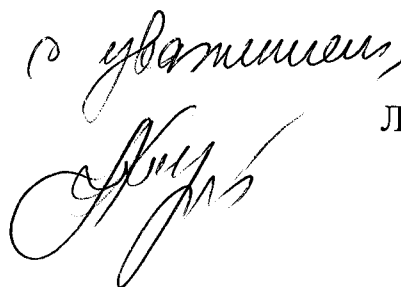 с уважением,
Л